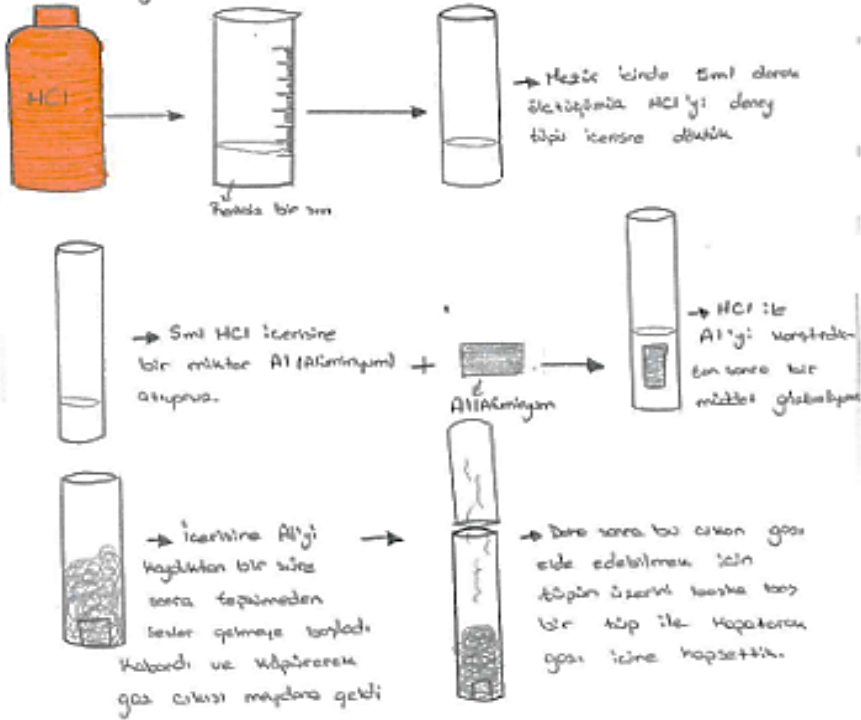 HCl
→ Mezür içinde 5ml olarak
ölçtüğümüz HCl'yi deney
tüpü içerisine döktük
Renksiz bir sıvı
→ 5ml HCl içerisine
bir miktar Al (Alüminyum)
atıyoruz.
+
Al(Alüminyum
→ HCl ile
Al'yi karıştırdık-
tan sonra bir
müddet gözlemliyoruz
→ İçerisine Al'yi
koyduktan bir süre
sonra tepkimeden
sesler gelmeye başladı
kabardı ve köpürerek
gaz çıkışı meydana geldi
→ Daha sonra bu çıkan gazı
elde edebilmek için
tüpün üzerini başka boş
bir tüp ile kapatarak
gazı içine hapsettik.